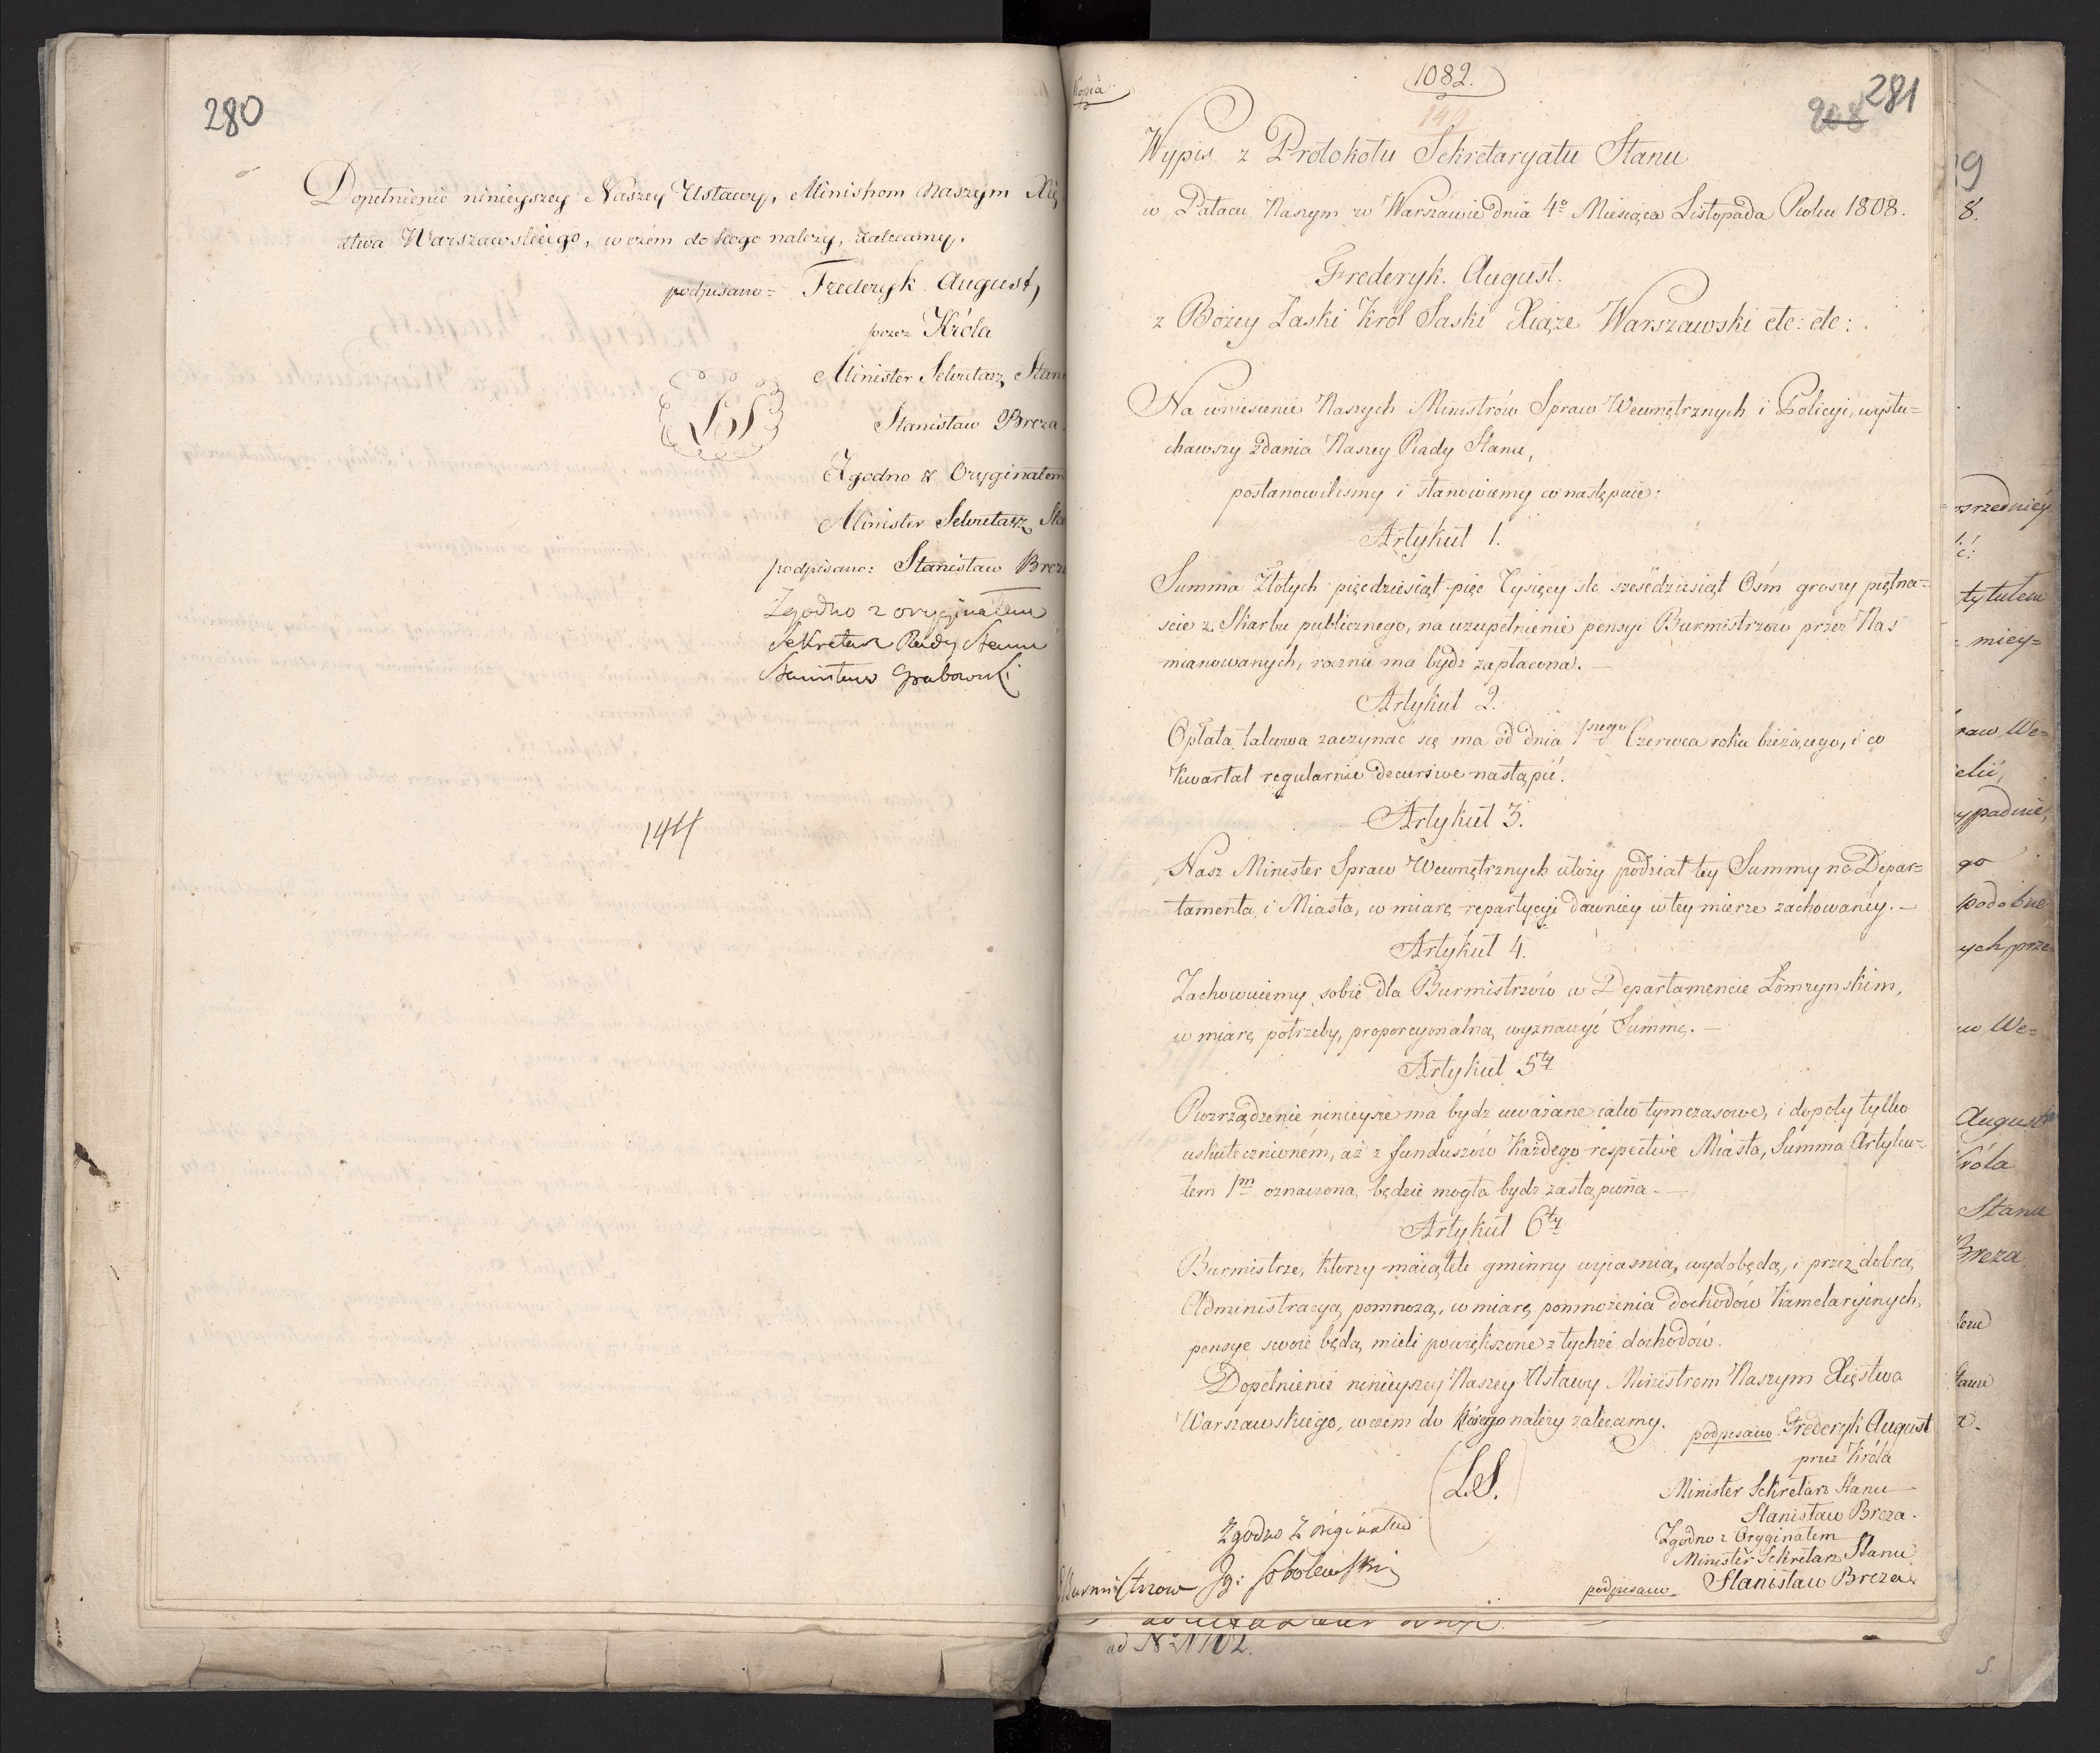 280
Dopełnienie ninieyszey Naszey Ustawy, Ministrom Naszym Xię
stwa Warszawskiego, w czém do kogo należy, zalecamy.
podpisano= Frederyk August,
przez Króla
Minister Sekretarz Stanu
LS
Stanisław Breza.
Zgodno z Oryginałem
Minister Sekretarz Sta
podpisano: Stanisław Brez
Zgodno z oryginałem
Sekretarz Rady Stanu
Stanisław Grabowski
144
Kopia
1082.
149
208
281
Wypis z Protokołu Sekretaryatu Stanu
w Pałacu Naszym w Warszawie dnia 4º Miesiąca Listopada Roku 1808.
Frederyk August.
z Bożey Łaski Król Saski Xiąże Warszawski etc: etc:
Na wniesienie Naszych Ministrów Spraw Wewnętrznych i Policyi, wysłu=
chawszy zdania Naszey Rady Stanu,
postanowiliśmy i stanowiemy co następuie:
Artykuł 1.
Summa Złotych pięćdziesiąt pięć Tysięcy sto sześćdziesiąt Ośm groszy piętna=
ście z Skarbu publicznego, na uzupełnienie pensyi Burmistrzów przez Nas
mianowanych, rocznie ma bydź zapłacona. —
Artykuł 2.
Opłata takowa zaczynać się ma od dnia 1szego Czerwca roku bieżącego, i co
Kwartał regularnie decursive nastąpić.
Artykuł 3.
Nasz Minister Spraw Wewnętrznych ułoży podział tey Summy na Depar=
tamenta i Miasta, w miarę repartycyi dawniey w tey mierze zachowaney. —
Artykuł 4.
Zachowuiemy sobie dla Burmistrzów w Departamencie Łomżynskim,
w miarę potrzeby, proporcyonalną wyznaczyć Summę. —
Artykuł 5ty
Rozrządzenie ninieysze ma bydz uważane iako tymczasowe, i dopóty tylko
uskutecznioném, aż z funduszów Każdego respective Miasta, Summa Artyku=
łem 1m oznaczona, będzie mogła bydz zastąpiona. —
Artykuł 6ty
Burmistrze, którzy maiątek gminny wyiaśnią, wydobędą, i przez dobrą
Administracyą pomnożą, w miarę pomnożenia dochodów Kamelaryinych,
pensye swoie będą mieli powiększone z tychże dochodów.
Dopełnienie ninieyszey Naszey Ustawy Ministrom Naszym Xięstwa
Warszawskiego, w czem do którego należy zalecamy.
podpisano. Frederyk August
przez Króla
(L.S.)
Minister Sekretarz Stanu
Stanisław Breza.
Zgodno z Oryginałem
Minister Sekretarz Stanu
podpisano Stanisław Breza.
Zgodno z originałem
Burmistrzow Ig: Sobolewski
ad Nº 1102.
9
8.
=
tytułem
= miey=
raw We=
ypadnie,
go
podobne
ych prze=
w We=
August
Króla
Stanu
Breza